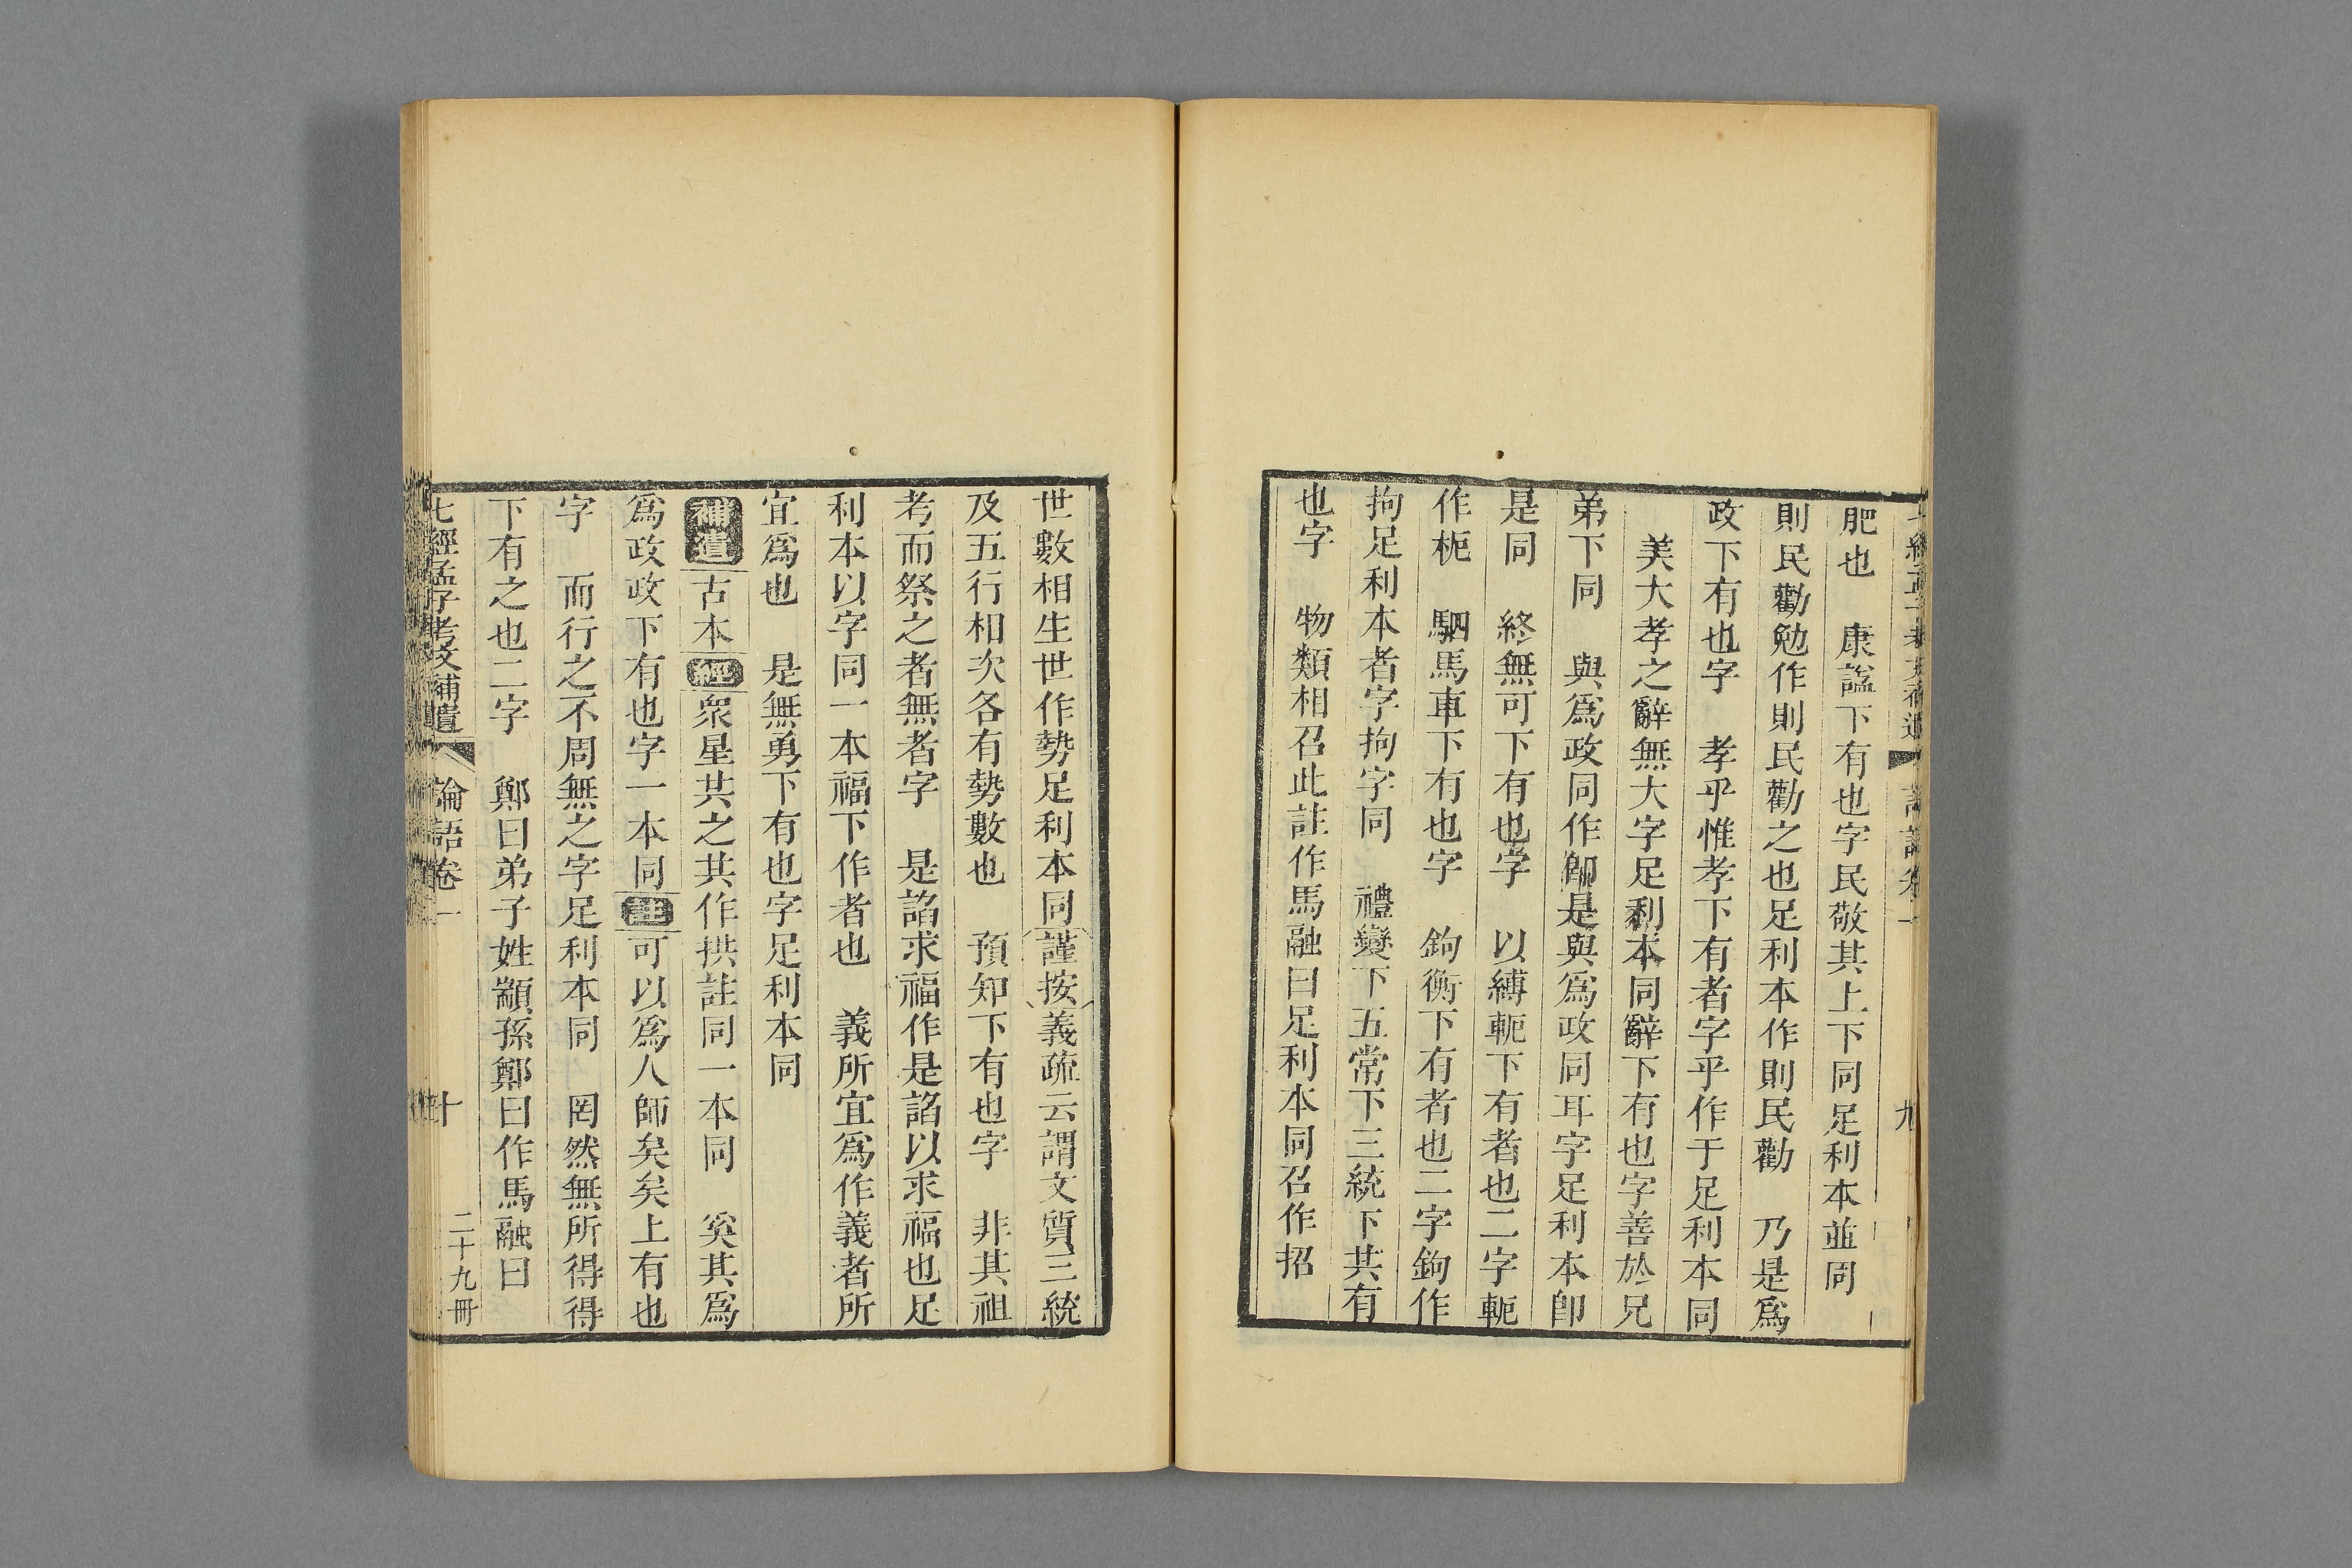 肥也　康謚下有也字民敬其上下同足利本並同
則民勸勉作則民勸之也足利本作則民勸　乃是爲
政下有也字　孝乎惟孝下有者字乎作于足利本同
美大孝之辭無大字足利本同辭下有也字善於兄
弟下同　與爲政同作卽是與爲政同耳字足利本卽
是同　終無可下有也字　以縛軛下有者也二字軛
作枙　駟馬車下有也字　鉤衡下有者也二字鉤作
拘足利本者字拘字同　禮變下五常下三統下其有
也字　物類相召此註作馬融曰足利本同召作招
世數相生世作勢足利本同謹按義疏云謂文質三統
及五行相次各有勢數也　預知下有也字　非其祖
考而祭之者無者字　是諂求福作是諂以求福也足
利本以字同一本福下作者也　義所宜爲作義者所
宜爲也　是無勇下有也字足利本同
補遺古本經衆星共之共作拱註同一本同　奚其爲
爲政政下有也字一本同註可以爲人師矣矣上有也
字　而行之不周無之字足利本同　罔然無所得得
下有之也二字　鄭曰弟子姓顓孫鄭曰作馬融曰
七經孟子考文補遺　論語卷一　十　二十九冊